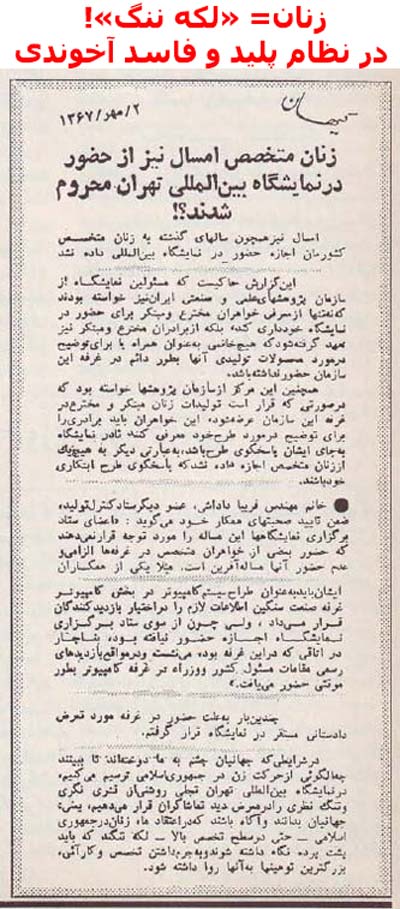 زنان= «لکه ننگ»!
در نظام پلید و فاسد آخوندی
کیهان
۲/مهر/۱۳۶۷
زنان متخصص امسال نیز از حضور
درنمایشگاه بین‌المللی تهران محروم
شدند؟!
امسال نیزهمچون سالهای گذشته به زنان متخصص
کشورمان اجازه حضور در نمایشگاه بین‌المللی داده نشد
این‌گزارش حاکیست که مسئولین نمایشگاه از
سازمان پژوهشهای‌علمی و صنعتی ایران‌نیز خواسته بودند
که‌نه‌تنها ازمعرفی خواهران مخترع ومبتکر برای حضور در
نمایشگاه خودداری کند، بلکه ازبرادران مخترع ومبتکر نیز
تعهد گرفته‌شودکه هیچ‌خانمی به‌عنوان همراه یا برای‌توضیح
درمورد محصولات تولیدی آنها بطور دائم در غرفه این
سازمان حضورنداشته‌باشد.
همچنین این مرکز ازسازمان پژوهشها خواسته بود که
درصورتی که قرار است تولیدات زنان مبتکر و مخترع‌در
غرفه این سازمان عرضه‌شود، این خواهران باید برادری‌را
برای توضیح درمورد طرح‌خود معرفی کنند تادر نمایشگاه
به‌جای ایشان پاسخگوی طرح‌باشد،به‌عبارتی دیگر به هیچ‌یک
اززنان متخصص اجازه داده نشدکه پاسخگوی طرح ابتکاری
خودباشند.
● خانم مهندس فریبا داداشی، عضو دیگرستادکنترل‌تولید،
ضمن تایید صحبتهای همکار خود می‌گوید : «اعضای ستاد
برگزاری نمایشگاهها این مساله را مورد توجه قرارنمی‌دهند
که حضور بعضی از خواهران متخصص در غرفه‌ها الزامی‌و
عدم حضور آنها مساله‌آفرین است. مثلا یکی از همکاران
ایشان‌بایدبه‌عنوان طراح‌سیستم‌کامپیوتر در بخش کامپیوتر
غرفه صنعت سنگین اطلاعات لازم را دراختیار بازدیدکنندگان
قرار می‌داد ، ولی چون از سوی ستاد برگزاری
نمایشگاه اجازه حضور نیافته بود، بناچار
در اتاقی که دراین غرفه بود، می‌نشست ودرمواقع‌بازدیدهای
رسمی مقامات مسئول کشور ووزراء در غرفه کامپیوتر بطور
موقتی حضور می‌یافت.»
چندین‌بار به‌علت حضور در غرفه مورد تعرض
دادستانی مستقر در نمایشگاه قرار گرفتم.
درشرایطی‌که جهانیان چشم به ما دوخته‌اند تا ببینند
چه‌الگوئی ازحرکت زن در جمهوری‌اسلامی ترسیم می‌کنیم،
درنمایشگاه بین‌المللی تهران تجلی روشنی‌از قشری نگری
وتنگ نظری رادرمعرض دید تماشاگران قرار می‌دهیم، یعنی:
جهانیان بدانند وآگاه باشند که‌دراعتقاد ما، زنان‌درجمهوری
اسلامی — حتی درسطح تخصص بالا — لکه ننگند که باید
پشت پرده نگاه داشته شوندوبه‌جرم‌داشتن تخصص وکارآئی،
بزرگترین توهینها به‌آنها روا داشته شود.